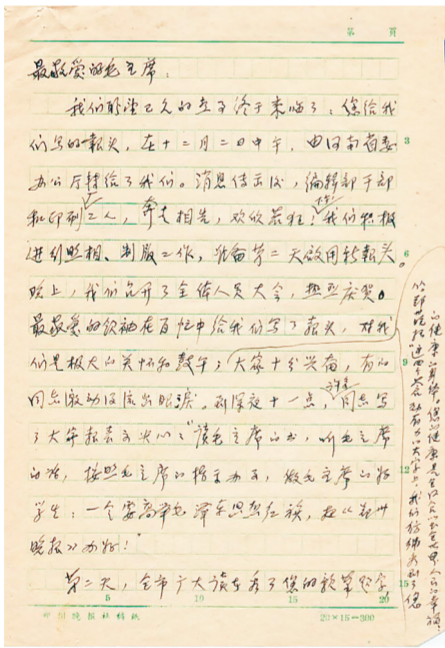 第　页
最敬爱的毛主席：
我们盼望已久的喜事终于来临了：您给我
们写的报头，在十二月二日中午，由河南省委
办公厅转给了我们。消息传出后，编辑部干部
和印刷工人，奔走相告，欢欣若狂！我们积极
进行照相、制版工作，准备第二天启用新报头。
晚上，我们召开了全体人员大会，热烈庆贺。
最敬爱的领袖在百忙中给我们写了报头，对我
们是极大的关怀和鼓舞；大家十分兴奋，有的
同志激动得流出眼泪。到深夜十一点，同志写
了大字报表示决心："读毛主席的书，听毛主席
的话，按照毛主席的指示办事，做毛主席的好
学生；一定要高举毛泽东思想红旗，把《郑州
晚报》办好！"
第二天，全市广大读者看了您的题字
3
6
9
12
15
5
10
15
20
郑州晚报社稿纸
20×15=300
的健康的身体。您的健康是全国人民和全世界人民的幸福。